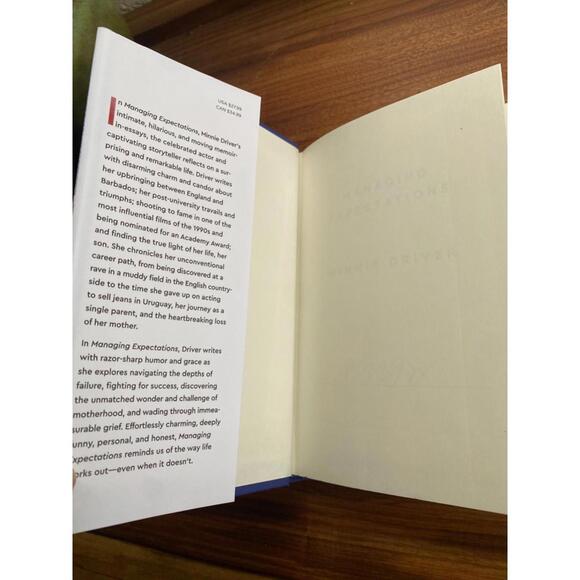 USA $27.99
CAN $34.99
In Managing Expectations, Minnie Driver's
intimate, hilarious, and moving memoir-
in-essays, the celebrated actor and
captivating storyteller reflects on a sur-
prising and remarkable life. Driver writes
with disarming charm and candor about
her upbringing between England and
Barbados; her post-university travails and
triumphs; shooting to fame in one of the
most influential films of the 1990s and
being nominated for an Academy Award;
and finding the true light of her life, her
son. She chronicles her unconventional
career path, from being discovered at a
rave in a muddy field in the English country-
side to the time she gave up on acting
to sell jeans in Uruguay, her journey as a
single parent, and the heartbreaking loss
of her mother.
In Managing Expectations, Driver writes
with razor-sharp humor and grace as
she explores navigating the depths of
failure, fighting for success, discovering
the unmatched wonder and challenge of
motherhood, and wading through immea-
surable grief. Effortlessly charming, deeply
unny, personal, and honest, Managing
xpectations reminds us of the way life
orks out—even when it doesn't.
MANAGING
EXPECTATIONS
MINNIE DRIVER